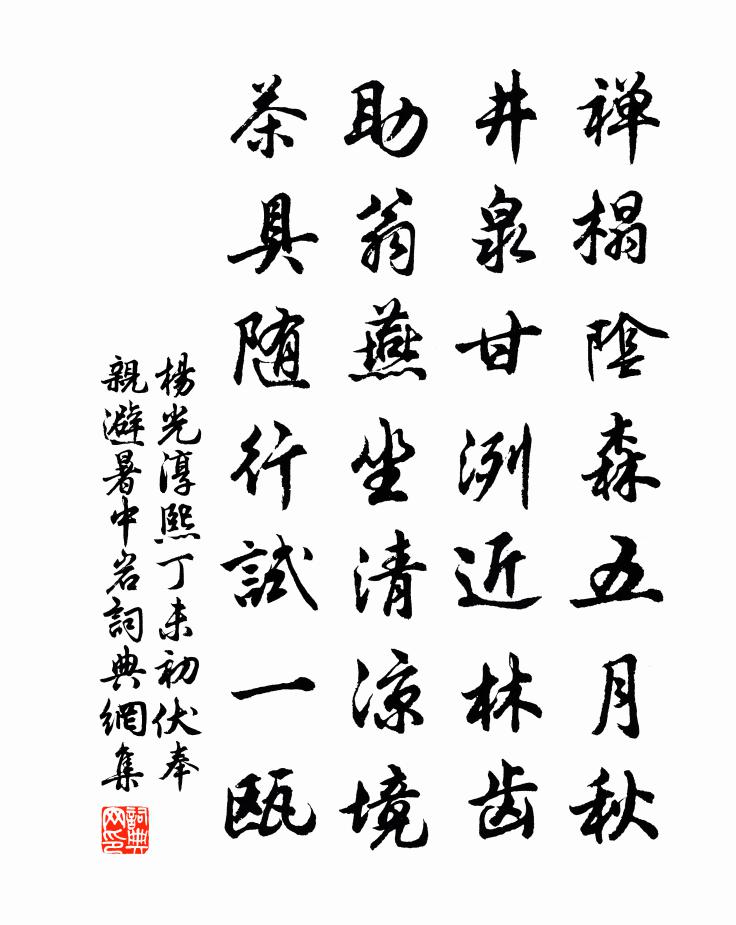 禅榻陰森五月秋
井泉甘洌近林齿
助翁燕坐清凉境
茶具随行試一瓯
楊光淳熙丁未初伏奉
親避暑中岩詞典網集
詞典网印